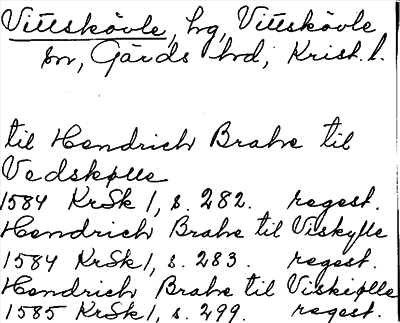 Vittskövle, hg, Vittskövle
sn, Gärds hd, Krist. l.
til Hendrich Brahe til
Vedskølle
1584 KrSk 1, s. 282. regest.
Hendrich Brahe til Viskylle
1584 KrSk 1, s. 283. regest.
Hendrich Brahe til Viskiølle
1585 KrSk 1, s. 299. regest.